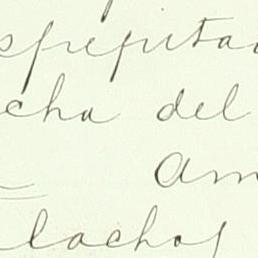 espepitar
cha del
Am
lachos